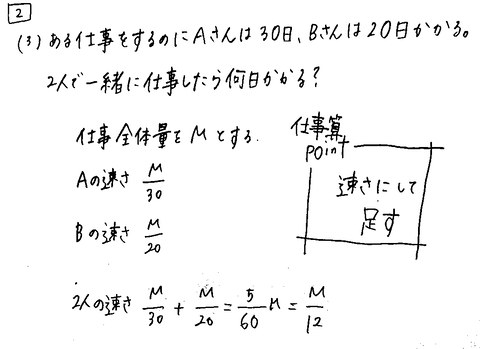 2
(3) ある仕事をするのにAさんは30日、Bさんは20日かかる。
2人で一緒に仕事したら何日かかる?
仕事全体量をMとする.
Aの速さ M/30
Bの速さ M/20
仕事算
point
速さにして
足す
2人の速さ M/30 + M/20 = 5/60 M = M/12